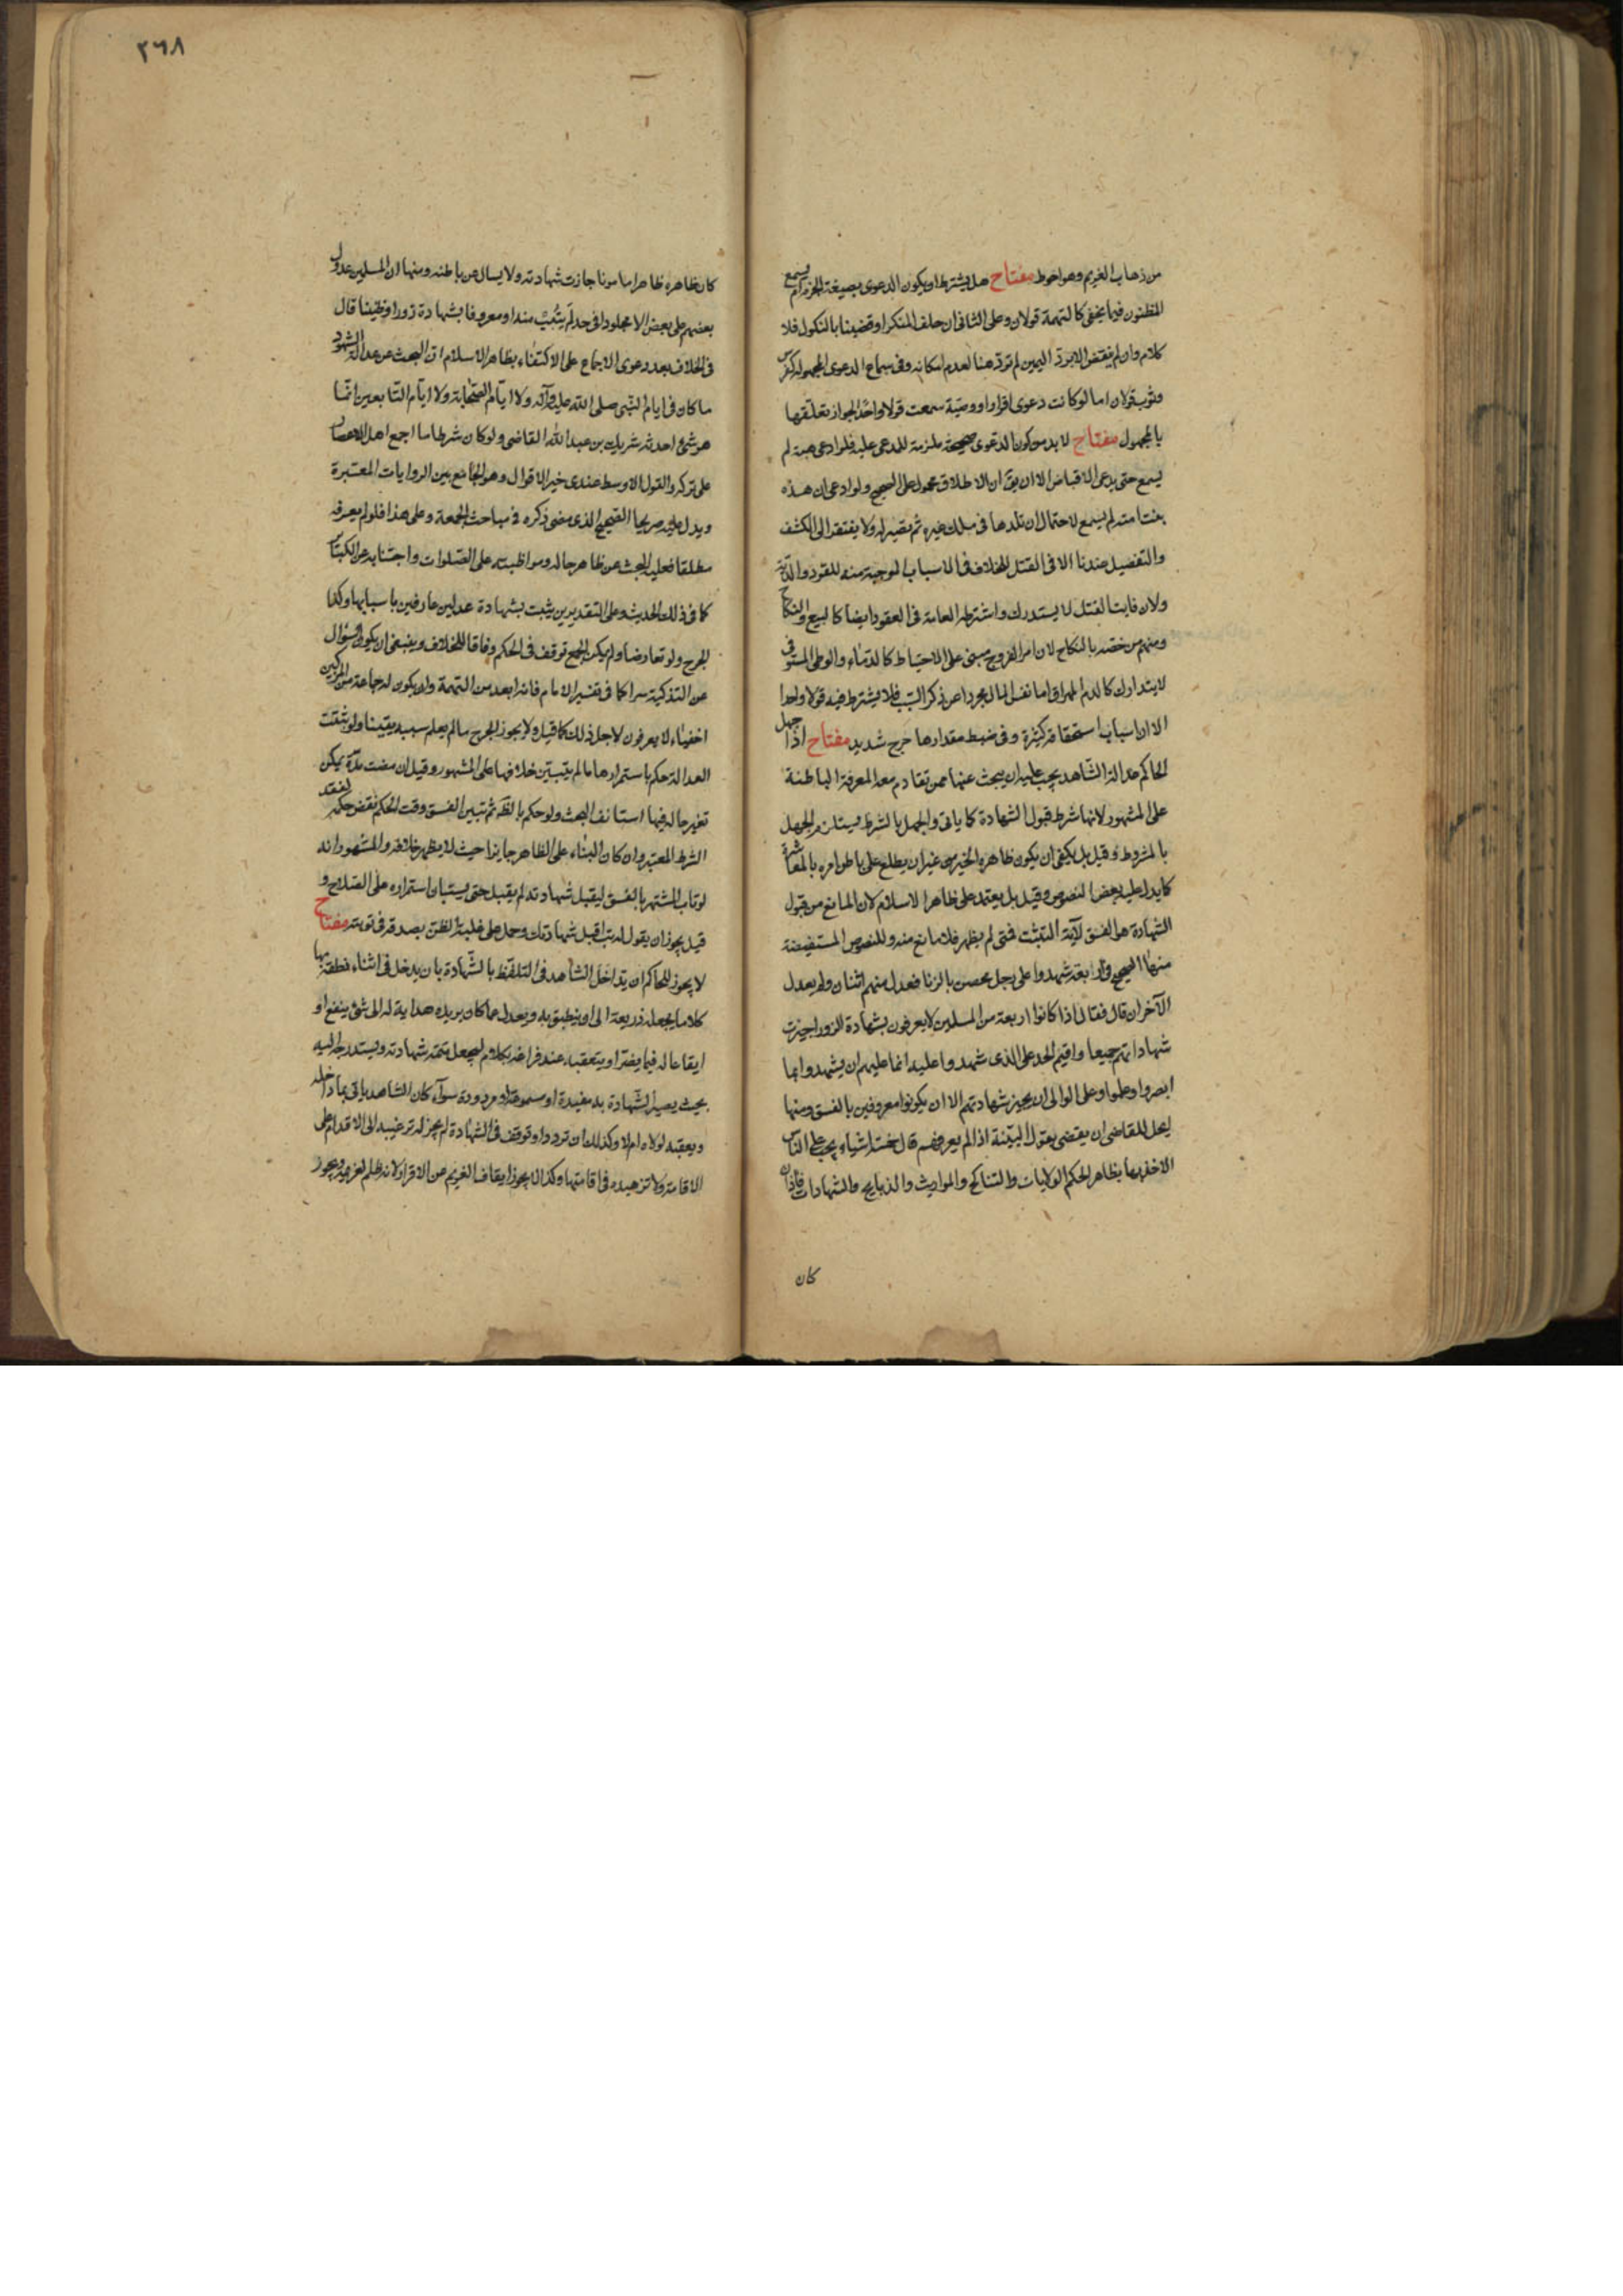 من ذهاب الغريم وهو احوط مفتاح هل يشترط ان يكون الدعوى بصيغة الجزم ام يسمع
المظنون فيما يخفى كالتهمة قولان وعلى الثانى ان حلف المنكر او قضينا بالنكول فلا
كلام وان لم نقض الا برد اليمين لم ترد هنا لعدم امكانه وفى سماع الدعوى المجهولة كفرس
وثوب قولان اما لو كانت دعوى اقرار او وصية سمعت قولا واحدا لجواز تعلقها
بالمجهول مفتاح لا بد من كون الدعوى صحيحة ملزمة للمدعى عليه فلو ادعى هبة لم
يسمع حتى يدعى الاقباض الا ان يق ان الاطلاق محمول على الصحيح ولو ادعى ان هذه
بنت امته لم يسمع لاحتمال ان تلدها فى ملك غيره ثم تصير له ولا يفتقر الى الكشف
والتفصيل عندنا الا فى القتل للخلاف فى الاسباب الموجبة منه للقود والدية
ولان فايت القتل لا يستدرك واشترطه العامة فى العقود ايضا كالبيع والنكاح
ومنهم من خصه بالنكاح لان امر الفروج مبنى على الاحتياط كالدماء والوطى المستوفى
لا يتدارك كالدم المهراق اما نفس المال مجردا عن ذكر السبب فلا يشترط فيه قولا واحدا
الا ان اسباب استحقاقه كثيرة وفى ضبط مقدارها حرج شديد مفتاح اذا جهل
الحاكم عدالة الشاهد يجب عليه ان يبحث عنها عمن تقادم معه المعرفة الباطنة
على المشهور لانها شرط قبول الشهادة كما ياتى والجهل بالشرط يستلزم الجهل
بالمشروط وقيل بل يكفى ان يكون ظاهره الخير من غير ان يطلع على باطن امره بالمعاشرة
كما يدل عليه بعض النصوص وقيل بل يعتمد على ظاهر الاسلام لان المانع من قبول
الشهادة هو الفسق لآية التثبت فمتى لم يظهر فلا مانع منه وللنصوص المستفيضة
منها الصحيح فى اربعة شهدوا على رجل محصن بالزنا فعدل منهم اثنان ولم يعدل
الآخران قال فقال اذا كانوا اربعة من المسلمين لا يعرفون بشهادة الزور اجيزت
شهاداتهم جميعا واقيم الحد على الذى شهدوا عليه انما عليهم ان يشهدوا بما
ابصروا وعلموا وعلى الوالى ان يجيز شهادتهم الا ان يكونوا معروفين بالفسق ومنها
ايحل للقاضى ان يقضى بقول البينة اذا لم يعرفهم قال خمسة اشياء يجب على الناس
الاخذ بها بظاهر الحكم الولايات والتناكح والمواريث والذبايح والشهادات فاذا
كان
٢٦٨
كان ظاهره ظاهرا مامونا جازت شهادته ولا يسال عن باطنه ومنها ان المسلمين عدول
بعضهم على بعض الا مجلودا فى حد لم يتب منه او معروفا بشهادة زور او ظنينا قال
فى الخلاف بعد دعوى الاجماع على الاكتفاء بظاهر الاسلام ان البحث عن عدالة الشهود
ما كان فى ايام النبى صلى الله عليه وآله ولا ايام الصحابة ولا ايام التابعين انما
هو شئ احدثه شريك بن عبد الله القاضى ولو كان شرطا ما اجمع اهل الاعصار
على تركه والقول الاوسط عندى خير الاقوال وهو الجامع بين الروايات المعتبرة
ويدل عليه صريحا الصحيح الذى مضى ذكره فى مباحث الجمعة وعلى هذا فلو لم يعرفه
مطلقا فعليه البحث عن ظاهر حاله ومواظبته على الصلوات واجتنابه عن الكبائر
كما فى ذلك الحديث وعلى التقديرين يثبت بشهادة عدلين عارفين باسبابها وكذا
الجرح ولو تعارضا ولم يمكن الجمع توقف فى الحكم وفاقا للخلاف وينبغى ان يكون السؤال
عن التزكية سرا كما فى تفسير الامام فانه ابعد من التهمة وان يكون له جماعة من المزكين
اخفياء لا يعرفون لاجل ذلك كما قيل ولا يجوز الجرح ما لم يعلم سببه يقينا ولو ثبتت
العدالة حكم باستمرارها ما لم يتبين خلافها على المشهور وقيل ان مضت مدة يمكن
تغير حاله فيها استانف البحث ولو حكم بالظ ثم تبين الفسق وقت الحكم نقض حكمه لفقد
الشرط المعتبر وان كان البناء على الظاهر جايزا حيث لا يظهر خلافه والمشهور انه
لو تاب المشتهر بالفسق ليقبل شهادته لم يقبل حتى يستبان استمراره على الصلاح و
قيل يجوز ان يقول له تب اقبل شهادتك وحمل على غلبة الظن بصدقه فى توبته مفتاح
لا يجوز للحاكم ان يتداخل الشاهد فى التلفظ بالشهادة بان يدخل فى اثناء نطقه بها
كلاما يجعله ذريعة الى ان ينطبق به ويعدل عما كان يريده هداية له الى شئ ينفع او
ايقاعا له فيما يضر او يتعقبه عند فراغه بكلام ليجعل تتمة شهادته ويستدرجه اليه
بحيث يصير الشهادة به مفيدة او مسموعة او مردودة سوآء كان الشاهد ياتى بما داخله
ويعقبه لولاه ام لا وكذلك ان تردد او توقف فى الشهادة لم يجز له ترغيبه الى الاقدام على
الاقامة ولا تزهيده فى اقامتها وكذا لا يجوز ايقاف الغريم عن الاقرار لانه ظلم لغريمه ويجوز